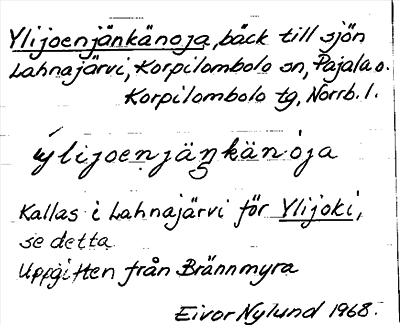 Ylijoenjänkänoja, bäck till sjön
Lahnajärvi, Korpilombolo sn, Pajala o.
Korpilombolo tg, Norrb. l.
ýlijoenjäŋkänoja
Kallas i Lahnajärvi för Ylijoki,
se detta
Uppgiften från Brännmyra
Eivor Nylund 1968.